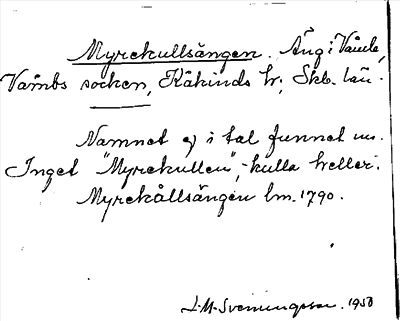 Myrekullsängen. Äng i Våmb,
Våmbs socken, Kåkinds hr; Skb. län.
Namnet ej i tal funnet nu.
Inget "Myrekullen", -kulla heller.
Myrekållsängen lm. 1790.
J. M. Svenungsson. 1950